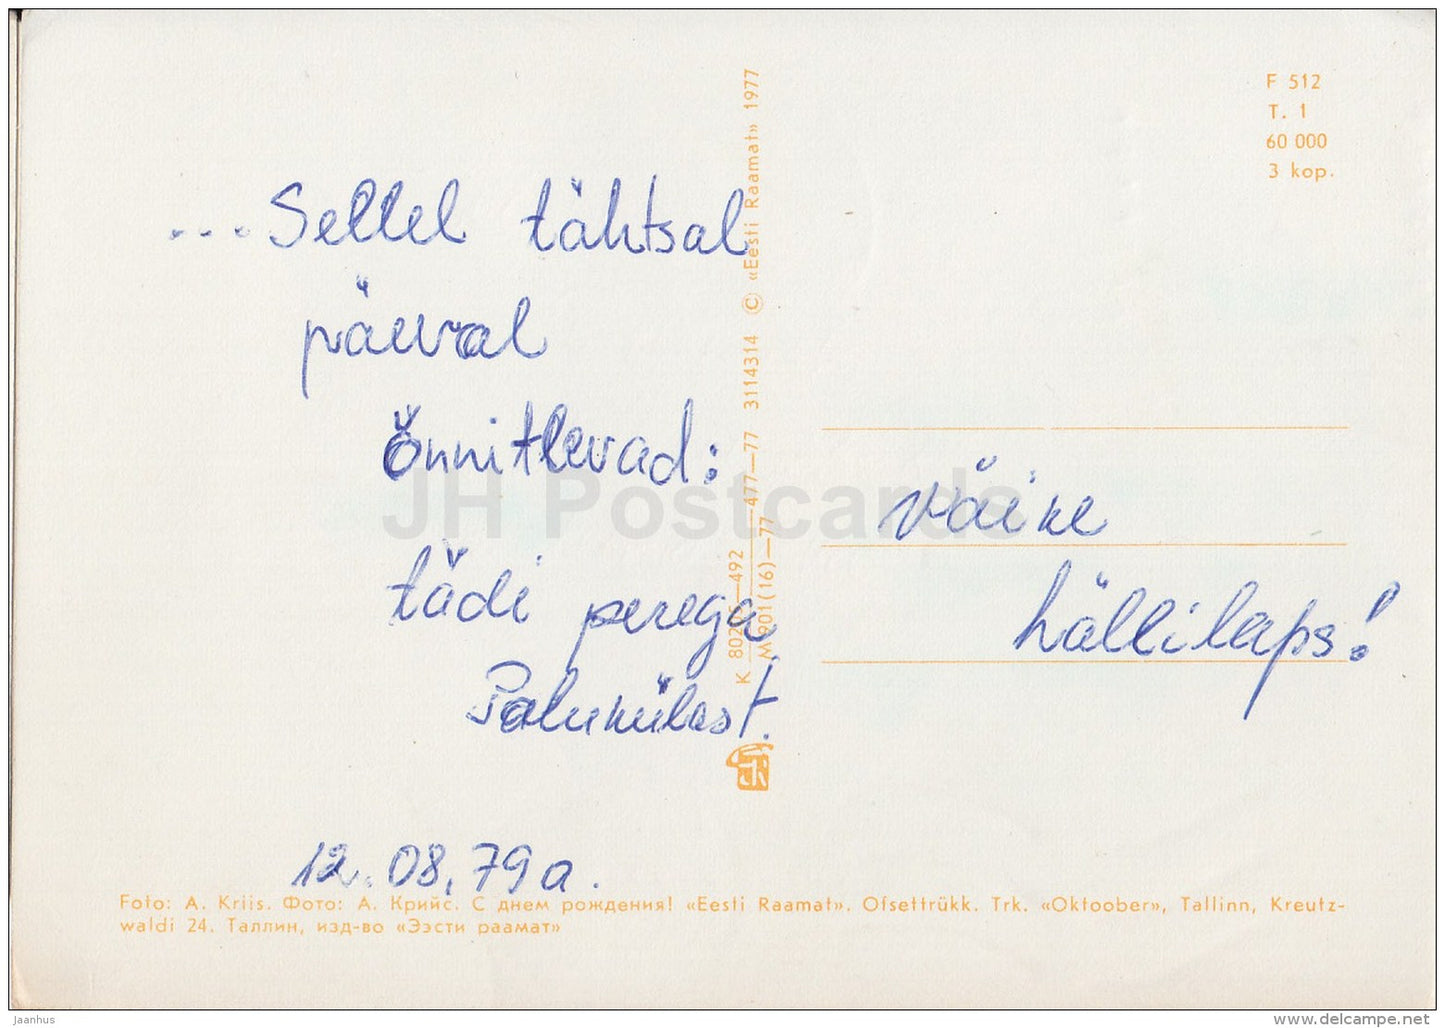 F 512
T. 1
60 000
3 kop.
... Sellel tähtsal
päeval
õnnitlevad:
tädi perega
Palukülast.
12.08.79a.
väike
hällilaps!
M 901(16)—77
477—77 3114314 © «Eesti Raamat» 1977
JH Postcards
Foto: A. Kriis. Фото: А. Крийс. С днем рождения! «Eesti Raamat». Ofsettrükk. Trk. «Oktoober», Tallinn, Kreutz-
waldi 24. Таллин, изд-во «Ээсти раамат»
jaanhus
www.delcampe.net